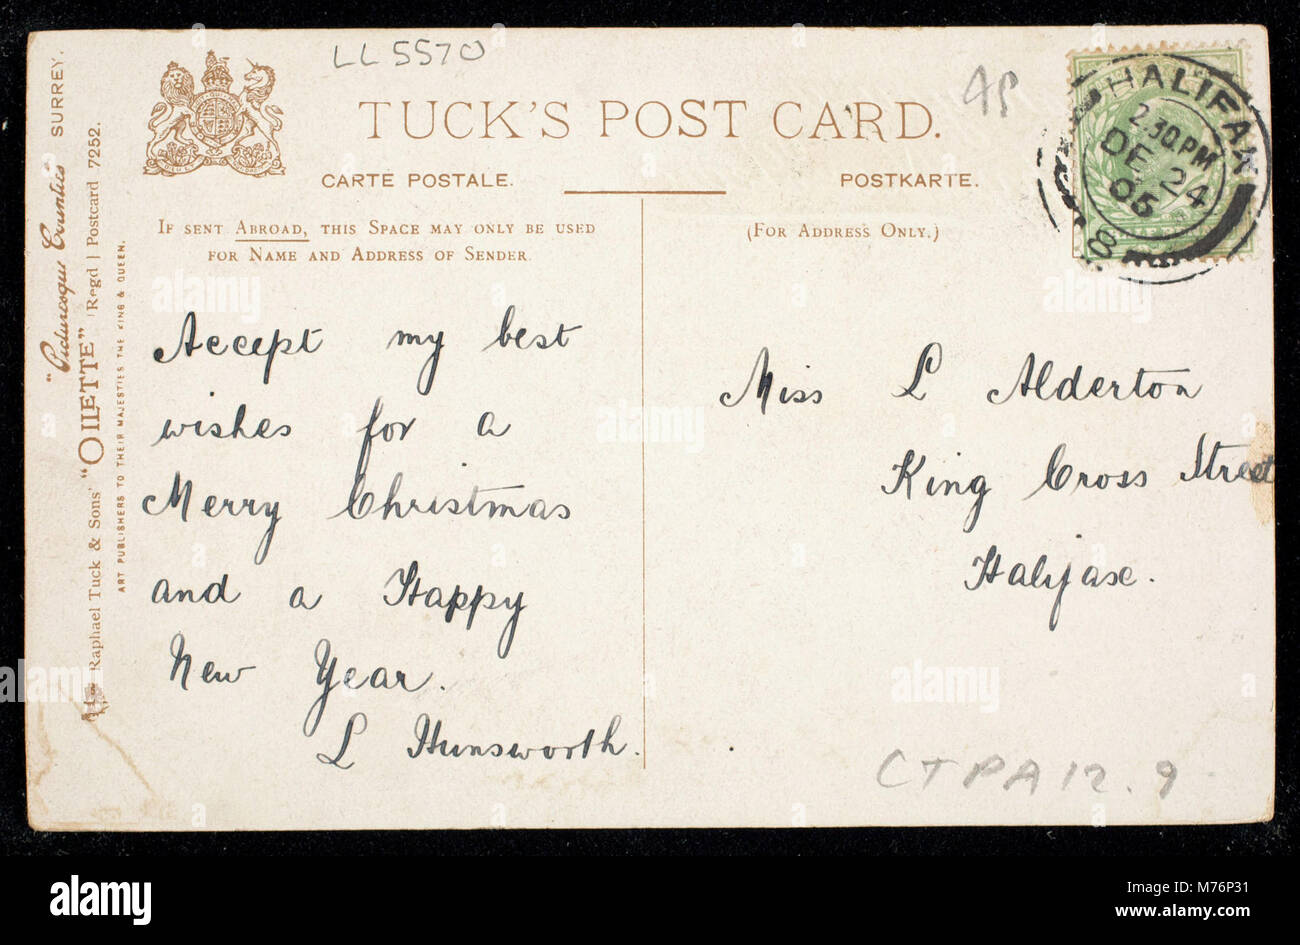 LL 5570
TUCK'S POST CARD.
CARTE POSTALE.
POSTKARTE.
IF SENT ABROAD, THIS SPACE MAY ONLY BE USED
FOR NAME AND ADDRESS OF SENDER
(FOR ADDRESS ONLY.)
HALIFAX
2.30 PM
DE 24
05
8
Accept my best
wishes for a
Merry Christmas
and a Happy
New Year.
L Hunsworth.
Miss L Alderton
King Cross Street
Halifax.
CTPA12.9
"Picturesque Counties" SURREY.
Raphael Tuck & Sons' "OILETTE" [Regd] Postcard 7252.
ART PUBLISHERS TO THEIR MAJESTIES THE KING & QUEEN.
alamy
alamy
Image ID: M76P31
www.alamy.com